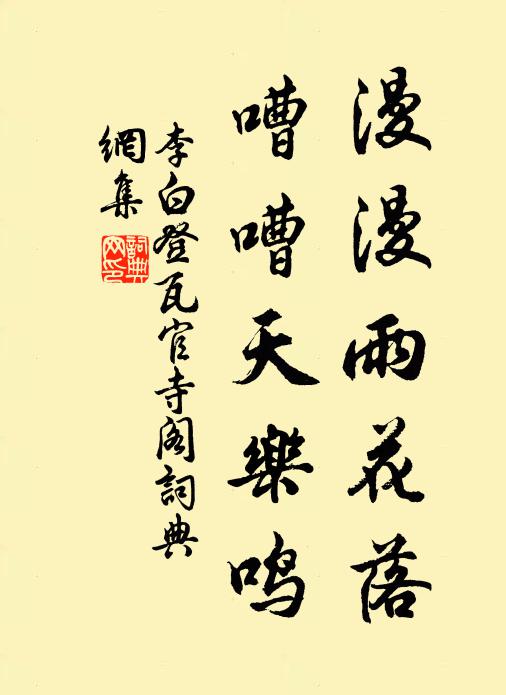 漫漫雨花落
嘈嘈天樂鸣
李白登瓦官寺阁詞典
網集
詞典
网印